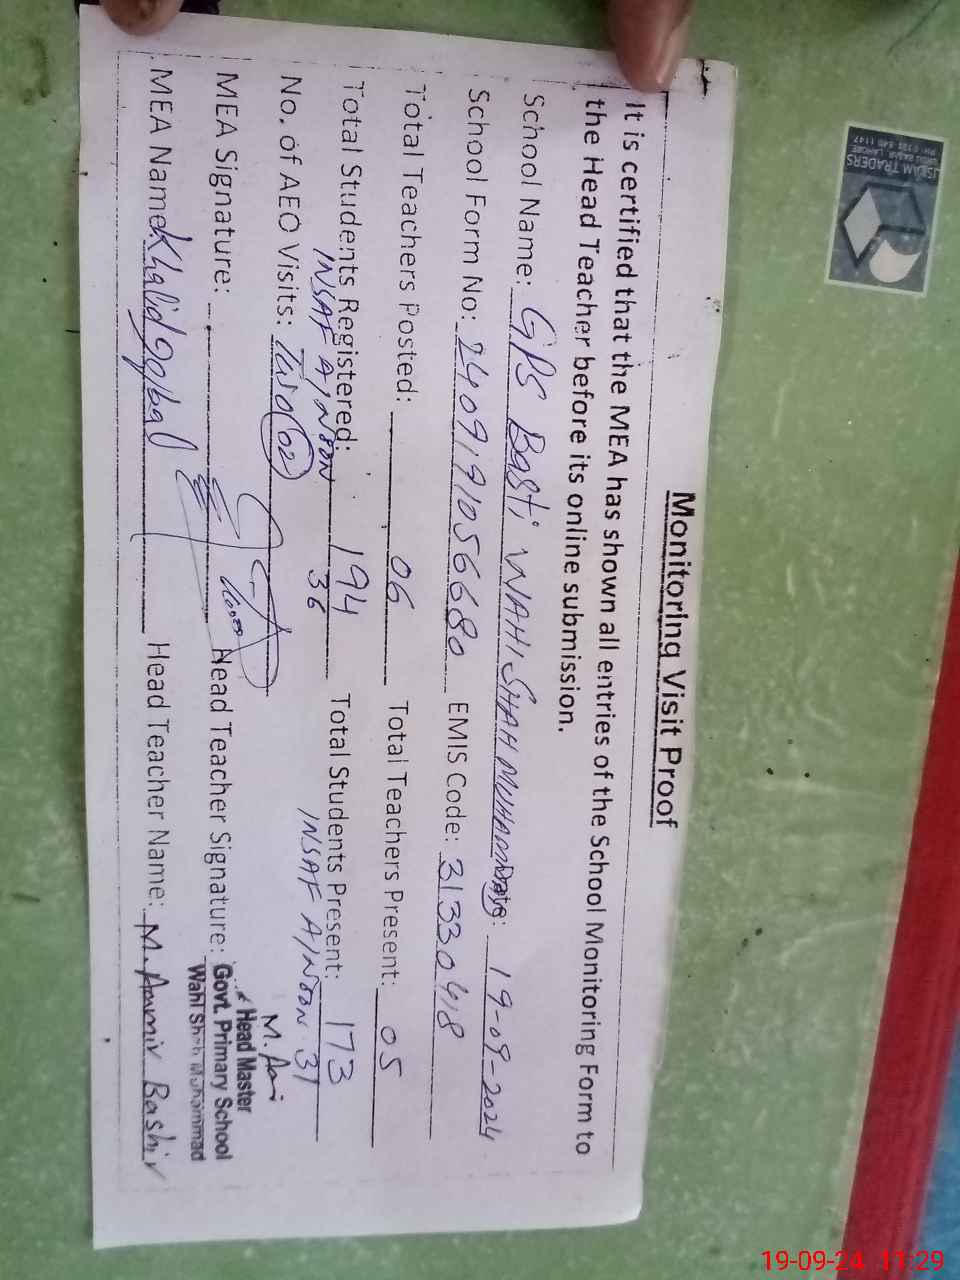 Monitoring Visit Proof
It is certified that the MEA has shown all entries of the School Monitoring Form to
the Head Teacher before its online submission.
School Name: GPS Basti WAHI SHAH MUHAMMAD Date: 19-09-2024
School Form No: 2409191056680 EMIS Code: 31330418
Total Teachers Posted: 06 Total Teachers Present: 05
Total Students Registered: 194 Total Students Present: 173
INSAF A/NOON 36 INSAF A/NOON 31
No. of AEO Visits: Two (02)
M.
Head Master
MEA Signature: Head Teacher Signature: Govt. Primary School
Wahi Shah Muhammad
MEA Name: Khalid Iqbal Head Teacher Name: M. Aamir Bashir
ISLAM TRADERS
URDU BAZAR LAHORE
19-09-24 11:29